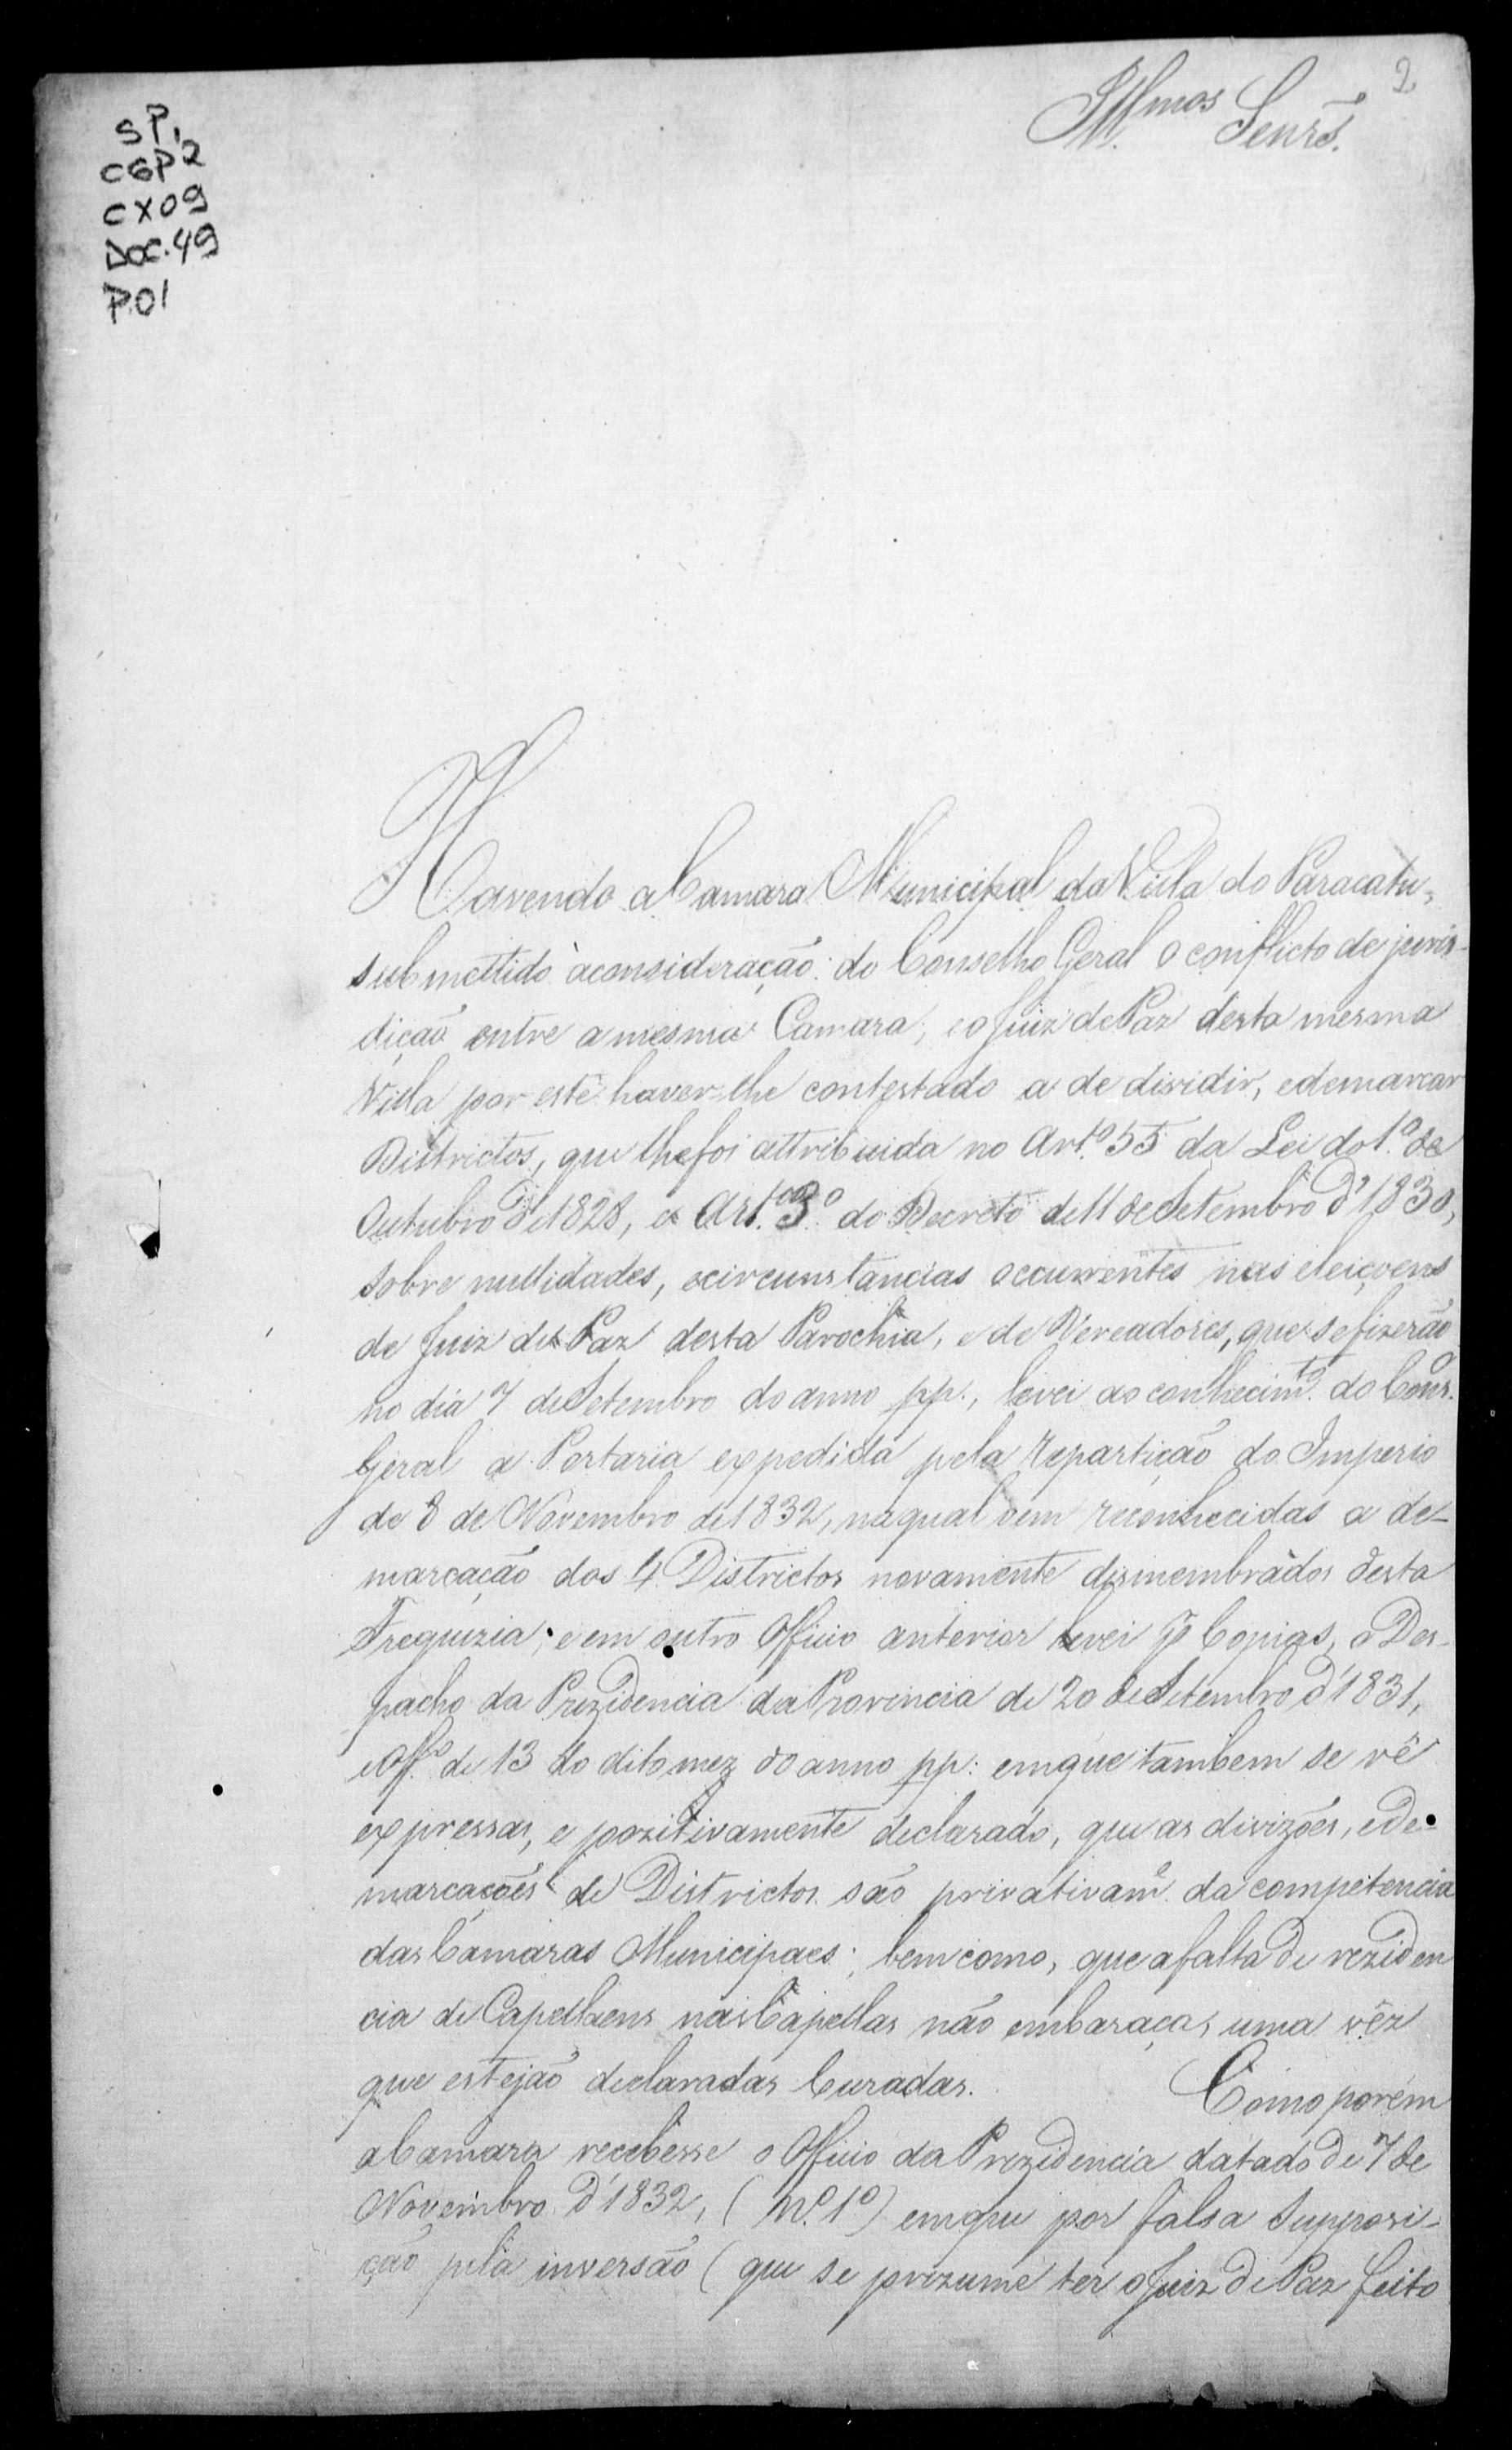 2
Ill.mos Senrs.
SP,
CGP2
CX09
DOC.49
P.01
Havendo a Camara Municipal da Villa do Paracatu,
submettido àconsideração do Conselho Geral o conflicto de juris-
dição entre a mesma Camara, eo Juiz de Paz desta mesma
Villa por este haver-lhe contestado a de dividir, edemarcar
Districtos, que lhefoi attribuida no Art.º 55 da Lei do 1.º de
Outubro de 1828, e Art.º 3.º do Decreto de 11 de Setembro d'1830,
sobre nullidades, ecircunstancias occurrentes nas eleiçoens
de Juiz de Paz desta Parochia, e de Vereadores, que sefizerão
no dia 7 de Setembro do anno pp., levei ao conhecim.to do Cons.o
Geral a Portaria expedida pela Repartição do Imperio
de 8 de Novembro de 1832, naqual vem reconhecidas a de-
marcação dos 4 Districtos novamente dismembrados desta
Freguizia; e em outro Officio anterior levei p Copias, o Des-
pacho da Prezidencia da Provincia de 20 de Setembro d'1831,
e Off.º de 13 do dito mez do anno pp: emque tambem se vê
expressas, e pozitivamente declarado, que as divizões, e de-
marcacões de Districtos são privativam.e da competencia
das Camaras Municipaes; bem como, que afalta de reziden
cia de Capellaens nas Capellas não embaraça, uma vêz
que estejão declaradas Curadas. Como porém
a Camara recebesse o Officio da Prezidencia datado de 7 de
Novembro d'1832, (N.º 1º) emque por falsa supposi-
ção pela inversão (que se prezume ter o Juiz de Paz feito